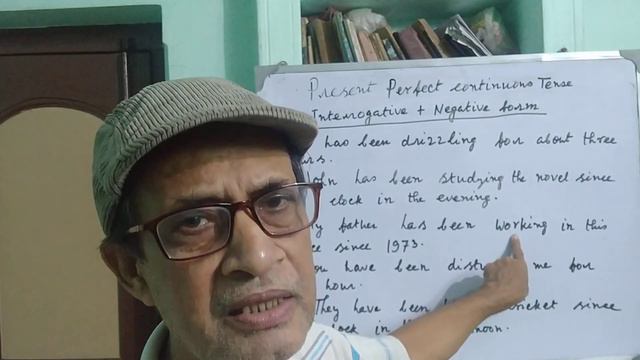 Present Perfect continuous Tense
Interrogative + Negative form
has been drizzling for about three
John has been studying the novel since
clock in the evening.
father has been working in this
since 1973.
have been me for
hour.
They have been cricket since